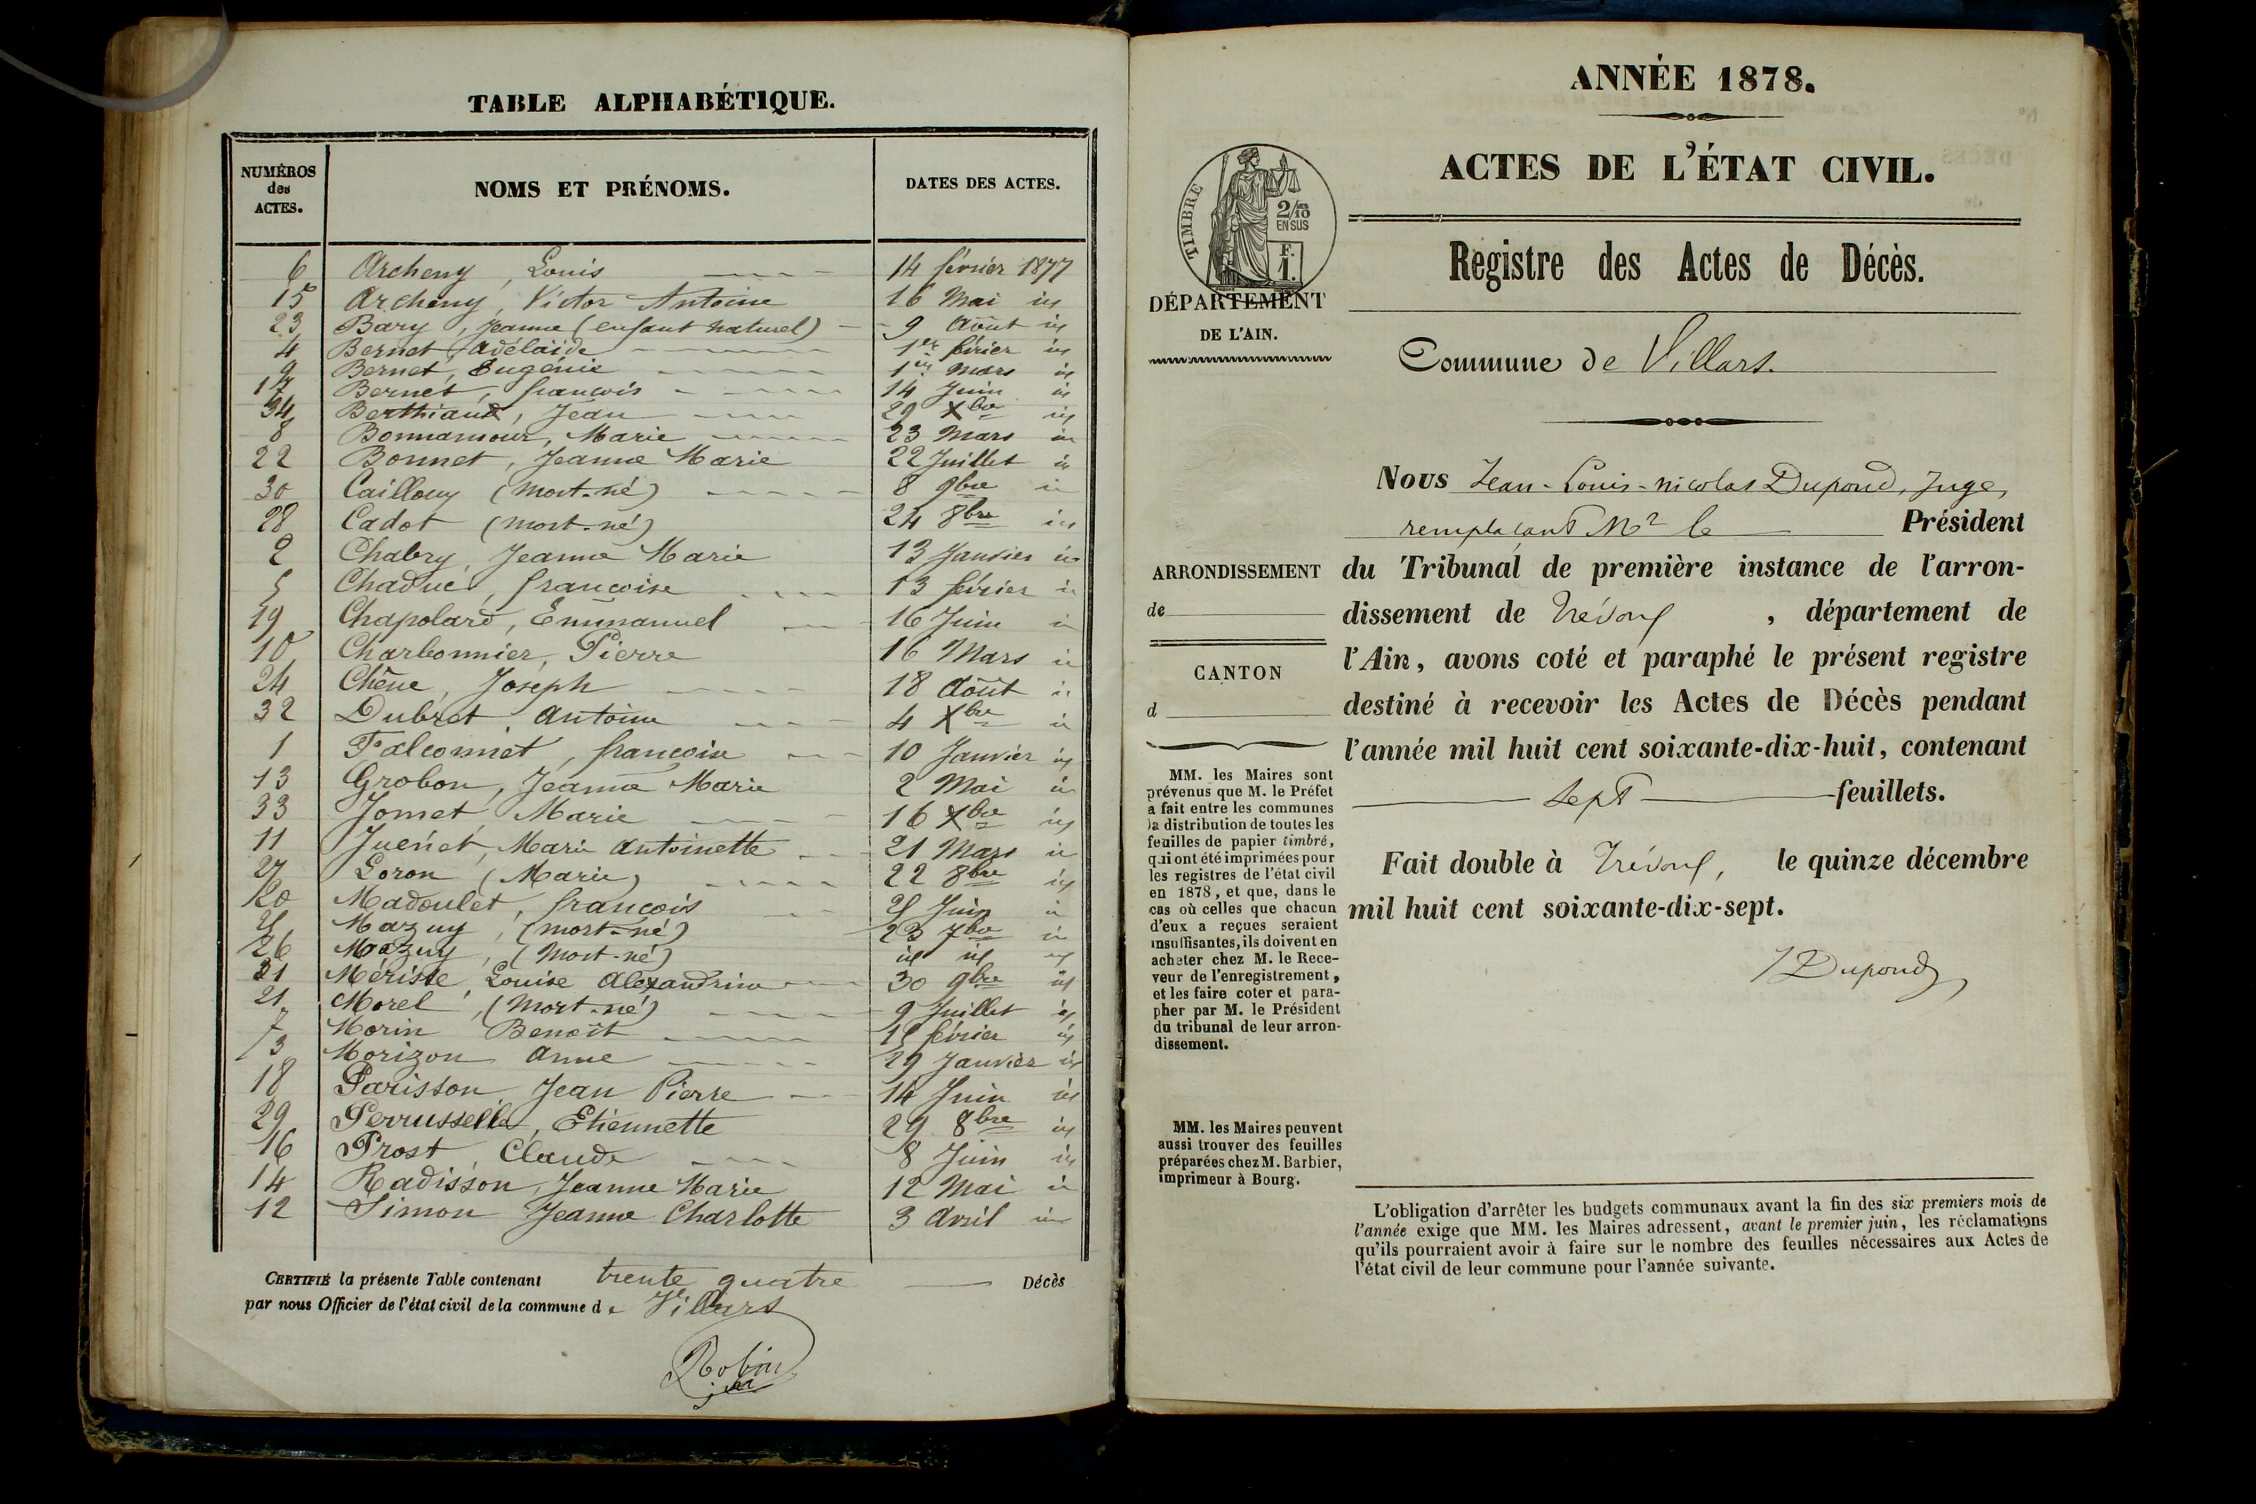 TABLE ALPHABÉTIQUE.
NUMÉROS des ACTES. NOMS ET PRÉNOMS. DATES DES ACTES.
6 Archeny, Louis 14 février 1877
15 Archeny, Victor Antoine 16 Mai id
23 Bary, Jeanne (enfant naturel) 9 Août id
4 Bernet Adélaïde 1er février id
9 Bernet, Eugénie 1er Mars id
17 Bernet, françois 14 Juin id
34 Berthiaud, Jean 29 Xbre id
8 Bonnamour, Marie 23 Mars id
22 Bonnet, Jeanne Marie 22 Juillet id
30 Caillouy (mort-né) 8 9bre id
28 Cadot (mort-né) 24 8bre id
2 Chabry, Jeanne Marie 13 Janvier id
5 Chaduc, françoise 13 février id
19 Chapolard, Emmanuel 16 Juin id
10 Charbonnier, Pierre 16 Mars id
24 Chêne, Joseph 18 Août id
32 Dubret, Antoine 4 Xbre id
1 Falconnet, françoise 10 Janvier id
13 Grobon, Jeanne Marie 2 Mai id
33 Jomet Marie 16 Xbre id
11 Juenet, Marie Antoinette 21 Mars id
27 Loron (Marie) 22 8bre id
20 Madoulet, françois Juin id
Mazuy, (mort-né) 23 7bre id
26 Mazuy, (Mort-né) id id id
31 Mériste, Louise Alexandrine 30 9bre id
21 Morel, (Mort-né) 9 Juillet id
7 Morin Benoît 15 février id
3 Morizon Anne 29 Janvier id
18 Parisson, Jean Pierre 14 Juin id
29 Perrussella, Etiennette 29 8bre id
16 Prost, Claude 8 Juin id
14 Radisson, Jeanne Marie 12 Mai id
12 Simon Jeanne Charlotte 3 Avril id
CERTIFIÉ la présente Table contenant trente quatre Décès
par nous Officier de l'état civil de la commune de Villars
Robin
ANNÉE 1878.
ACTES DE L'ÉTAT CIVIL.
TIMBRE
2/10 EN SUS
F. 1.
DÉPARTEMENT
DE L'AIN.
Registre des Actes de Décès.
Commune de Villars.
Nous Jean-Louis-Nicolas Dupond, Juge,
remplaçant Mr le Président
du Tribunal de première instance de l'arron-
dissement de Trévoux, département de
l'Ain, avons coté et paraphé le présent registre
destiné à recevoir les Actes de Décès pendant
l'année mil huit cent soixante-dix-huit, contenant
sept feuillets.
Fait double à Trévoux, le quinze décembre
mil huit cent soixante-dix-sept.
Dupond
ARRONDISSEMENT
de
CANTON
d
MM. les Maires sont
prévenus que M. le Préfet
a fait entre les communes
la distribution de toutes les
feuilles de papier timbré,
qui ont été imprimées pour
les registres de l'état civil
en 1878, et que, dans le
cas où celles que chacun
d'eux a reçues seraient
insuffisantes, ils doivent en
acheter chez M. le Rece-
veur de l'enregistrement,
et les faire coter et para-
pher par M. le Président
du tribunal de leur arron-
dissement.
MM. les Maires peuvent
aussi trouver des feuilles
préparées chez M. Barbier,
imprimeur à Bourg.
L'obligation d'arrêter les budgets communaux avant la fin des six premiers mois de
l'année exige que MM. les Maires adressent, avant le premier juin, les réclamations
qu'ils pourraient avoir à faire sur le nombre des feuilles nécessaires aux Actes de
l'état civil de leur commune pour l'année suivante.